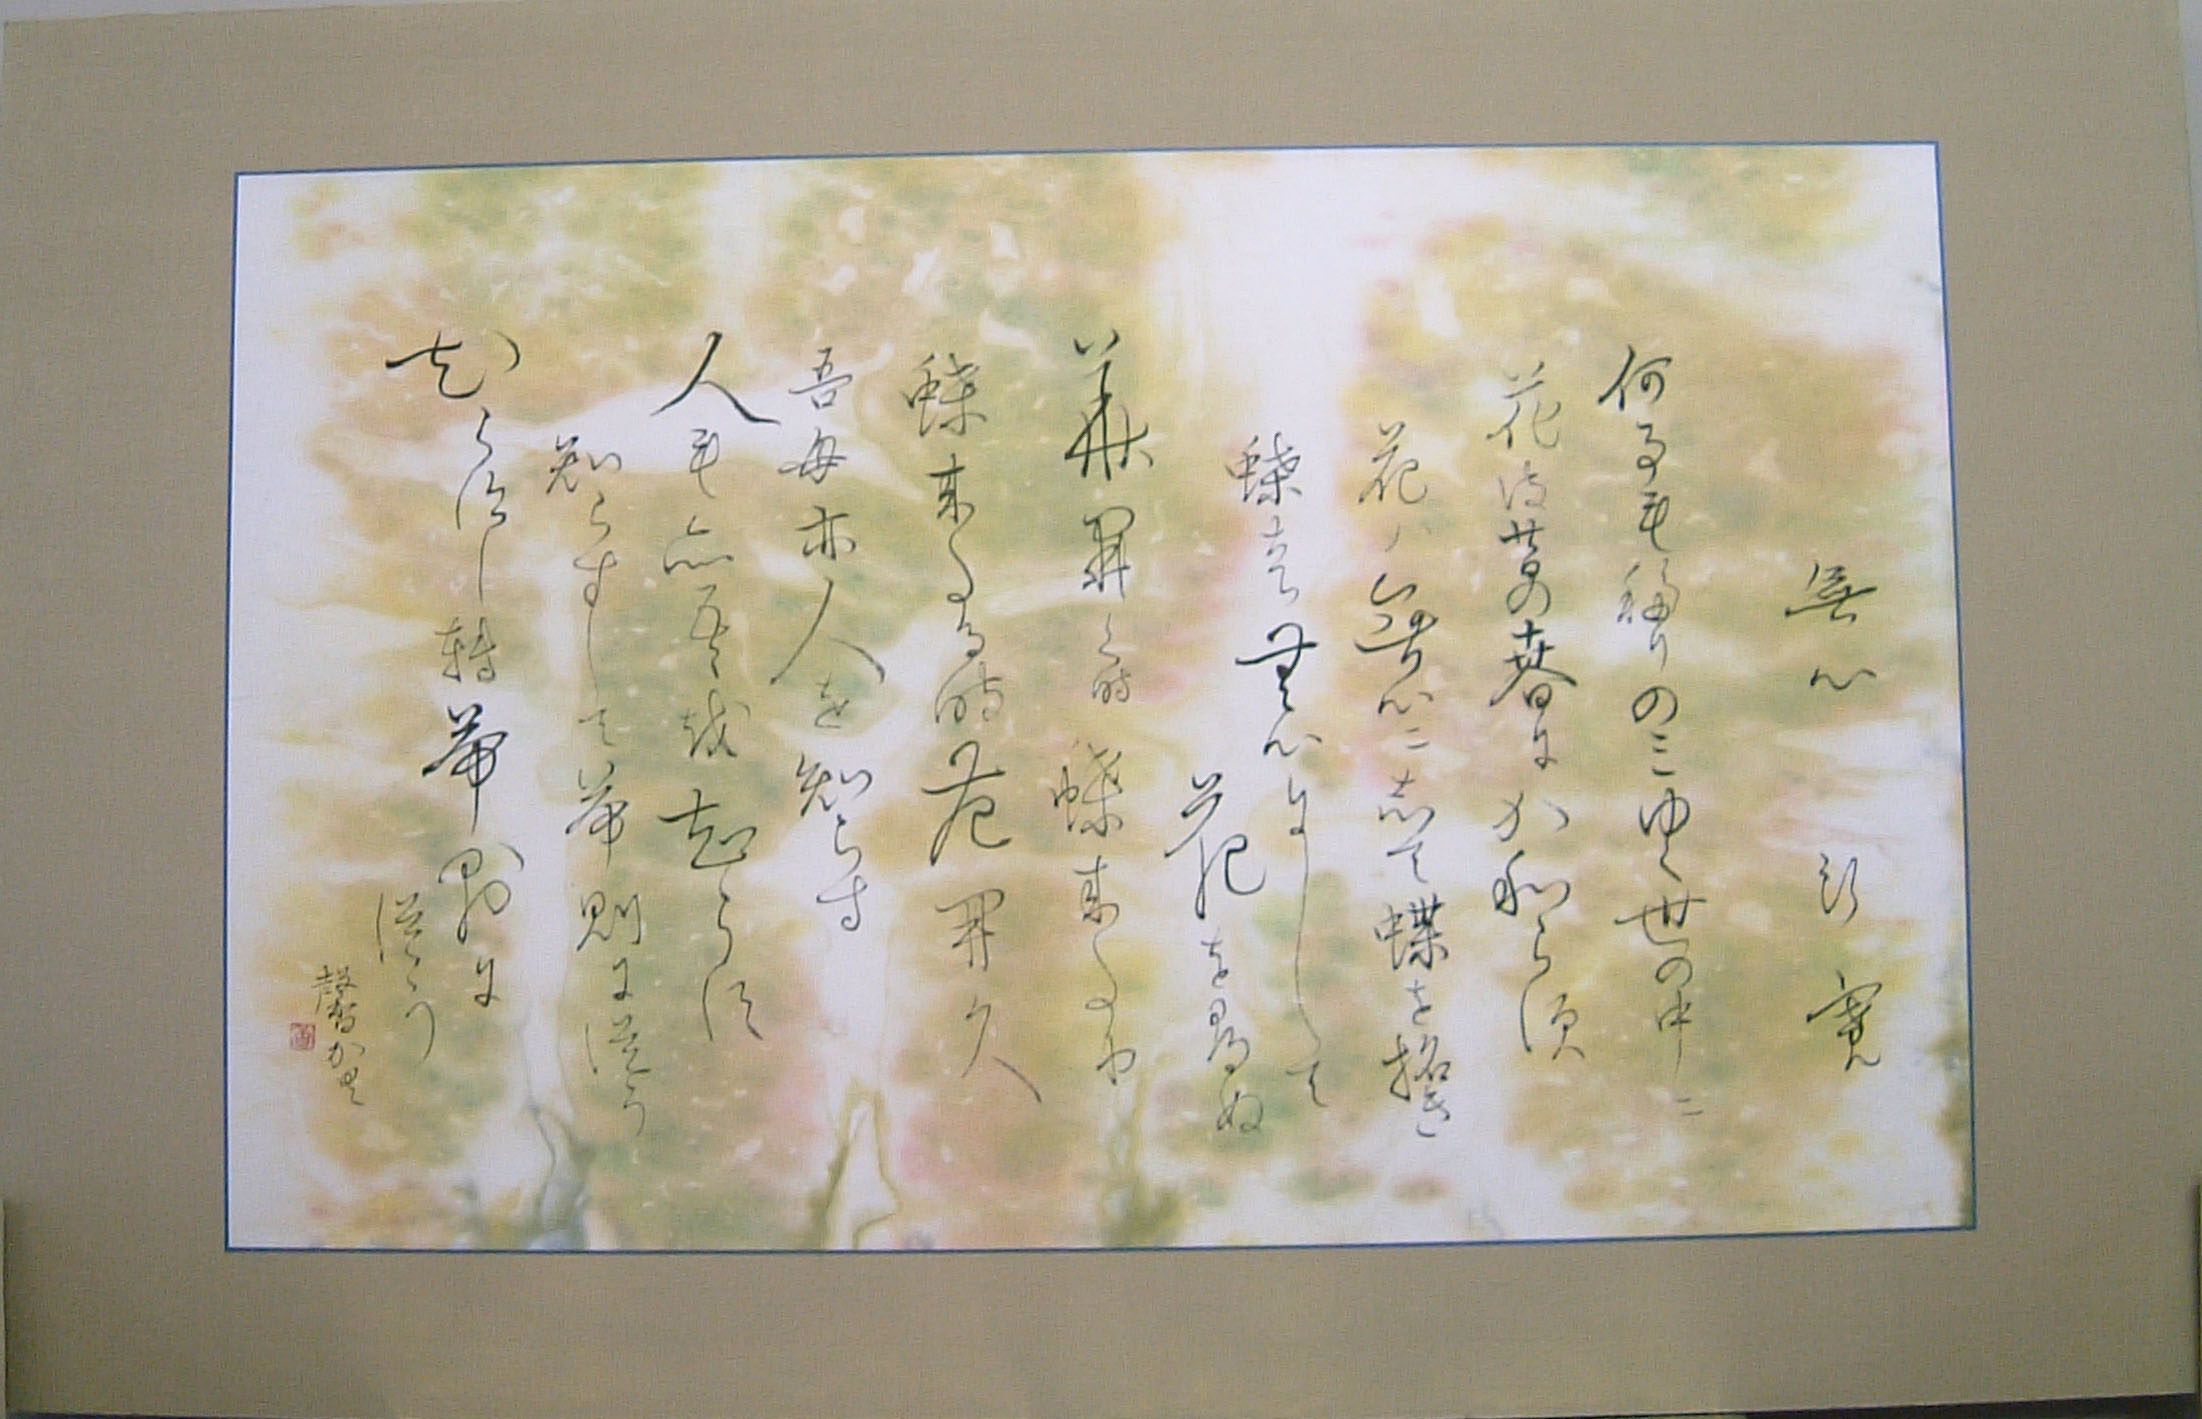 無心 良寛
何事も移りのみゆく世の中に
花は昔の春にかわらず
花ハ無心ニして蝶を招き
蝶は無心にして
花を尋ぬ
華開く時蝶来る也
蝶来る時花開く
吾も亦人を知らず
人も亦吾を知らず
知らずして帝則に従う
知らずして帝則に
従う
馨かく